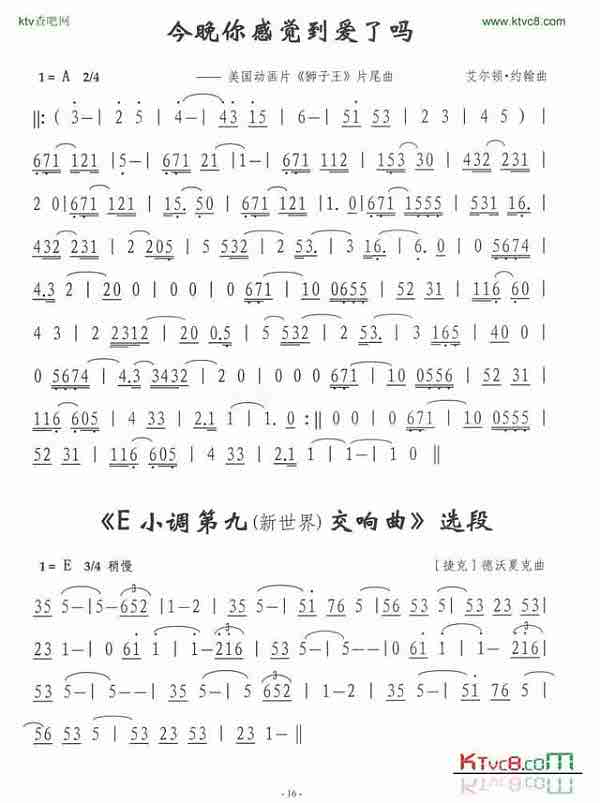 ktv查吧网
www.ktvc8.com
今晚你感觉到爱了吗
1= A 2/4 —— 美国动画片《狮子王》片尾曲 艾尔顿·约翰曲
‖:( 3–| 2 5 | 4–| 43 15 | 6–| 51 53 | 2 3 | 4 5 ) |
671 121 |5–| 671 21 |1–| 671 112 | 153 30 | 432 231 |
2 0|671 121 | 15. 50 | 671 121 |1. 0|671 1555 | 531 16. |
432 231 | 2 205 | 5 532 | 2 53. | 3 16. | 6. 0 | 0 5674 |
4.3 2 | 20 0 | 0 0 | 0 671 | 10 0655 | 52 31 | 116 60 |
4 3 | 2 2312 | 20 0.5 | 5 532 | 2 53. | 3 165 | 40 0 |
0 5674 | 4.3 3432 | 2 20 | 0 0 | 0 671 | 10 0556 | 52 31 |
116 605 | 4 33 | 2.1 1 | 1. 0 :‖ 0 0 | 0 671 | 10 0555 |
52 31 | 116 605 | 4 33 | 2.1 1 | 1–| 1–0 ‖
《E 小调第九(新世界)交响曲》选段
1= E 3/4 稍慢 [捷克]德沃夏克曲
35 5–|5–652 |1–2 | 35 5–|5– 51 | 51 76 5 |56 53 5| 23 53 |
23 1–| 0 61 1 | 1–216| 1–– |5––| 0 61 1 | 1–216|
53 5––|5––| 35 5–|5 652 | 1–2 | 35 5–|5– 51 |51 76 5 |
56 53 5 | 53 23 5 | 23 53 | 23 1–‖
KTvc8.com
- 16 -